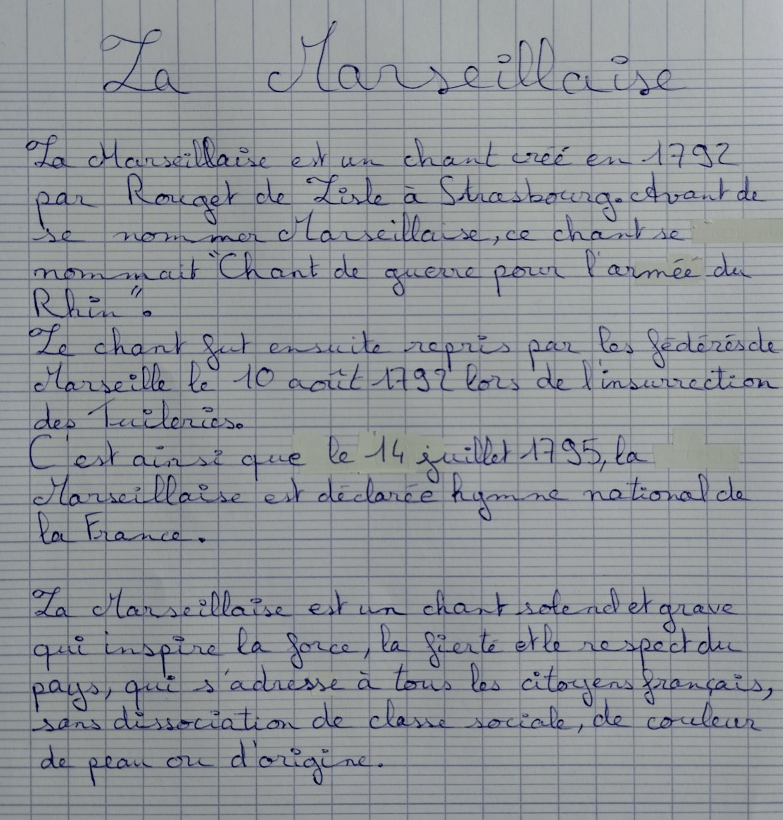 La Marseillaise
La Marseillaise est un chant créé en 1792
par Rouget de Lisle à Strasbourg. Avant de
se nommer Marseillaise, ce chant se
nommait "Chant de guerre pour l'armée du
Rhin".
Le chant fut ensuite repris par les fédérés de
Marseille le 10 août 1792 lors de l'insurrection
des Tuileries.
C'est ainsi que le 14 juillet 1795, la
Marseillaise est déclarée hymne national de
la France.
La Marseillaise est un chant solend et grave
qui inspire la force, la fierté et le respect du
pays, qui s'adresse à tous les citoyens français,
sans dissociation de classe sociale, de couleur
de peau ou d'origine.